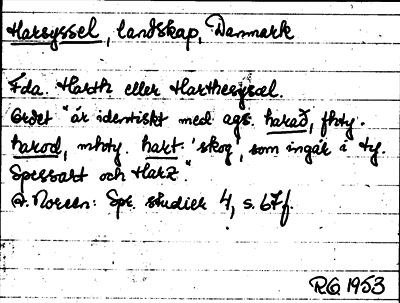 Harsyssel, landskap, Danmark
Fda. Harth eller Harthesysæl.
Ordet "är identiskt med ags. harað, fhty.
harod, mhty. hart 'skog', som ingår i ty.
Spessart och Harz."
A. Noreen: Spr. studier 4, s. 67 f.
RG 1953